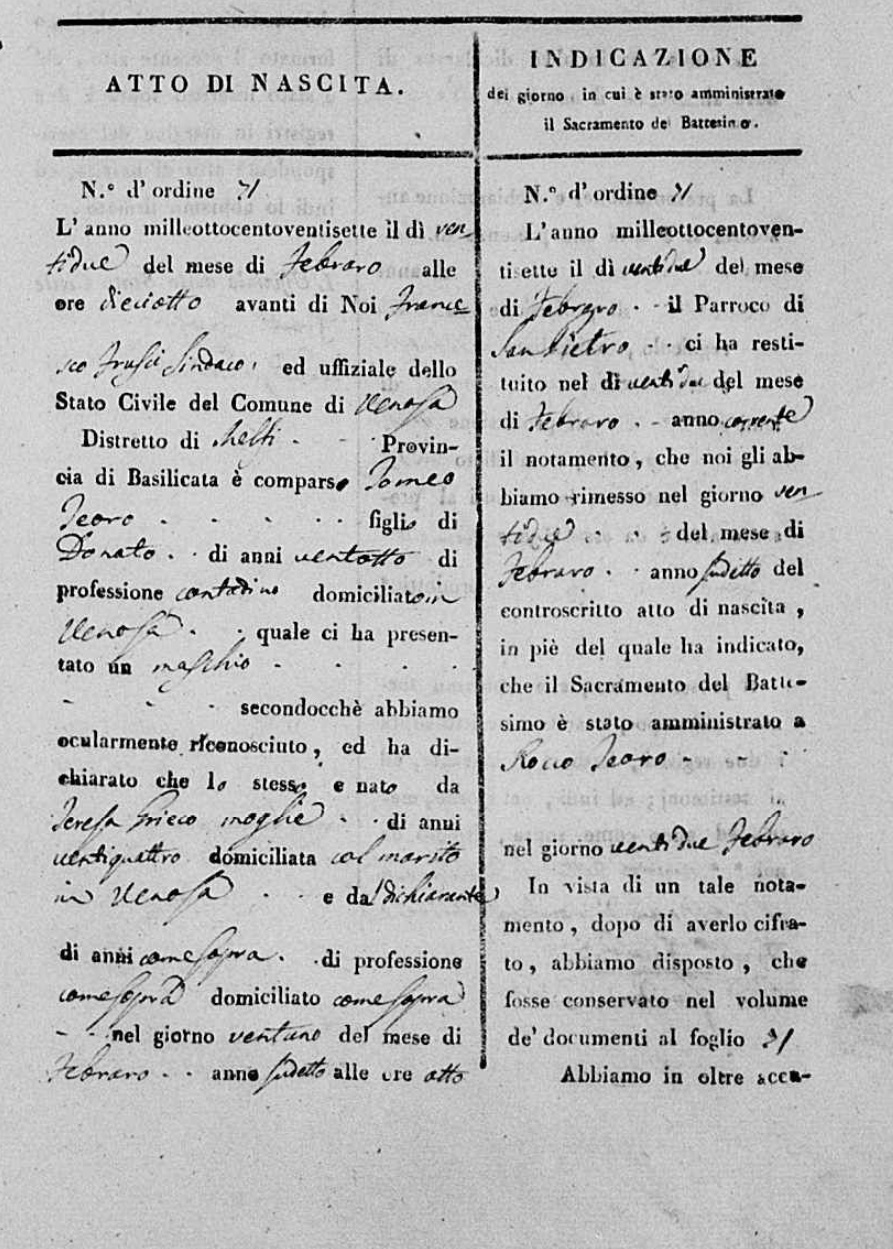 ATTO DI NASCITA.
N.º d'ordine 71
L'anno milleottocentoventisette il dì ven
tidue del mese di Febraro alle
ore dieciotto avanti di Noi France
sco Frusci Sindaco, ed uffiziale dello
Stato Civile del Comune di Venosa
Distretto di Melfi Provin-
cia di Basilicata è comparso Tomeo
Teoro figlio di
Donato di anni ventotto di
professione contadino domiciliato in
Venosa quale ci ha presen-
tato un maschio
secondocchè abbiamo
ocularmente riconosciuto, ed ha di-
chiarato che lo stesso e nato da
Teresa Grieco moglie di anni
ventiquattro domiciliata col marito
in Venosa e dal dichiarante
di anni come sopra di professione
come sopra domiciliato come sopra
nel giorno ventuno del mese di
Febraro anno sudetto alle ore otto
INDICAZIONE
del giorno in cui è stato amministrato
il Sacramento del Battesimo.
N.º d'ordine 71
L'anno milleottocentoven-
tisette il dì ventidue del mese
di Febraro il Parroco di
San Pietro ci ha resti-
tuito nel dì ventidue del mese
di Febraro anno corrente
il notamento, che noi gli ab-
biamo rimesso nel giorno ven
tidue del mese di
Febraro anno sudetto del
controscritto atto di nascita,
in piè del quale ha indicato,
che il Sacramento del Batte-
simo è stato amministrato a
Rocco Teoro
nel giorno ventidue Febraro
In vista di un tale nota-
mento, dopo di averlo cifra-
to, abbiamo disposto, che
fosse conservato nel volume
de' documenti al foglio 71
Abbiamo in oltre accu-